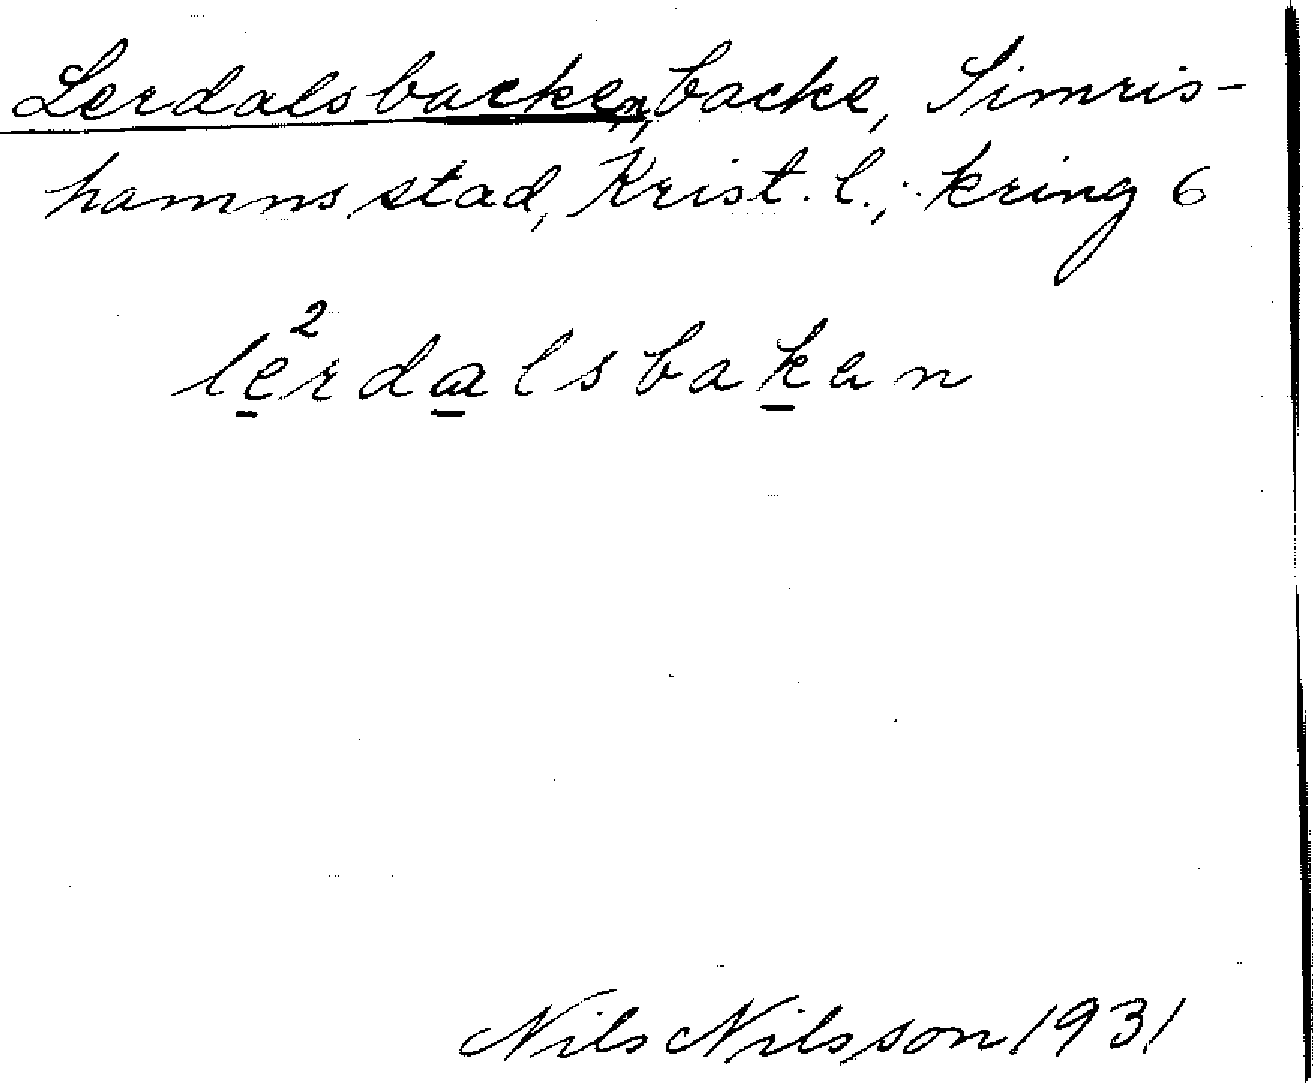 Lerdalsbacken, backe, Simris-
hamns stad, Krist. l.; kring 6
le̱²rda̱lsbaḵen
Nils Nilsson 1931